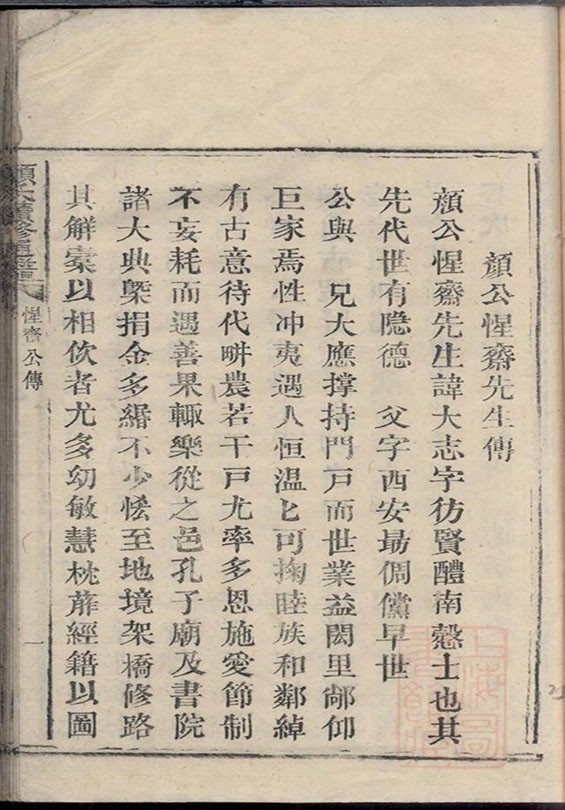 顏公惺齋先生傳
顏公惺齋先生諱大志字彷賢醴南慤士也其
先代世有隐德 父字西安最倜儻早世
公與 兄大應撑持門戸而世業益閎里鄰仰
巨家焉性冲夷遇人恒温匕可掬睦族和鄰綽
有古意待代畊農若干戸尤率多恩施愛節制
不妄耗而遇善果輙樂從之邑孔子廟及書院
諸大典槩捐金多緡不少恡至地境架橋修路
其解橐以相佽者尤多㓜敏慧枕葄經籍以圖
惺齋公傳
一